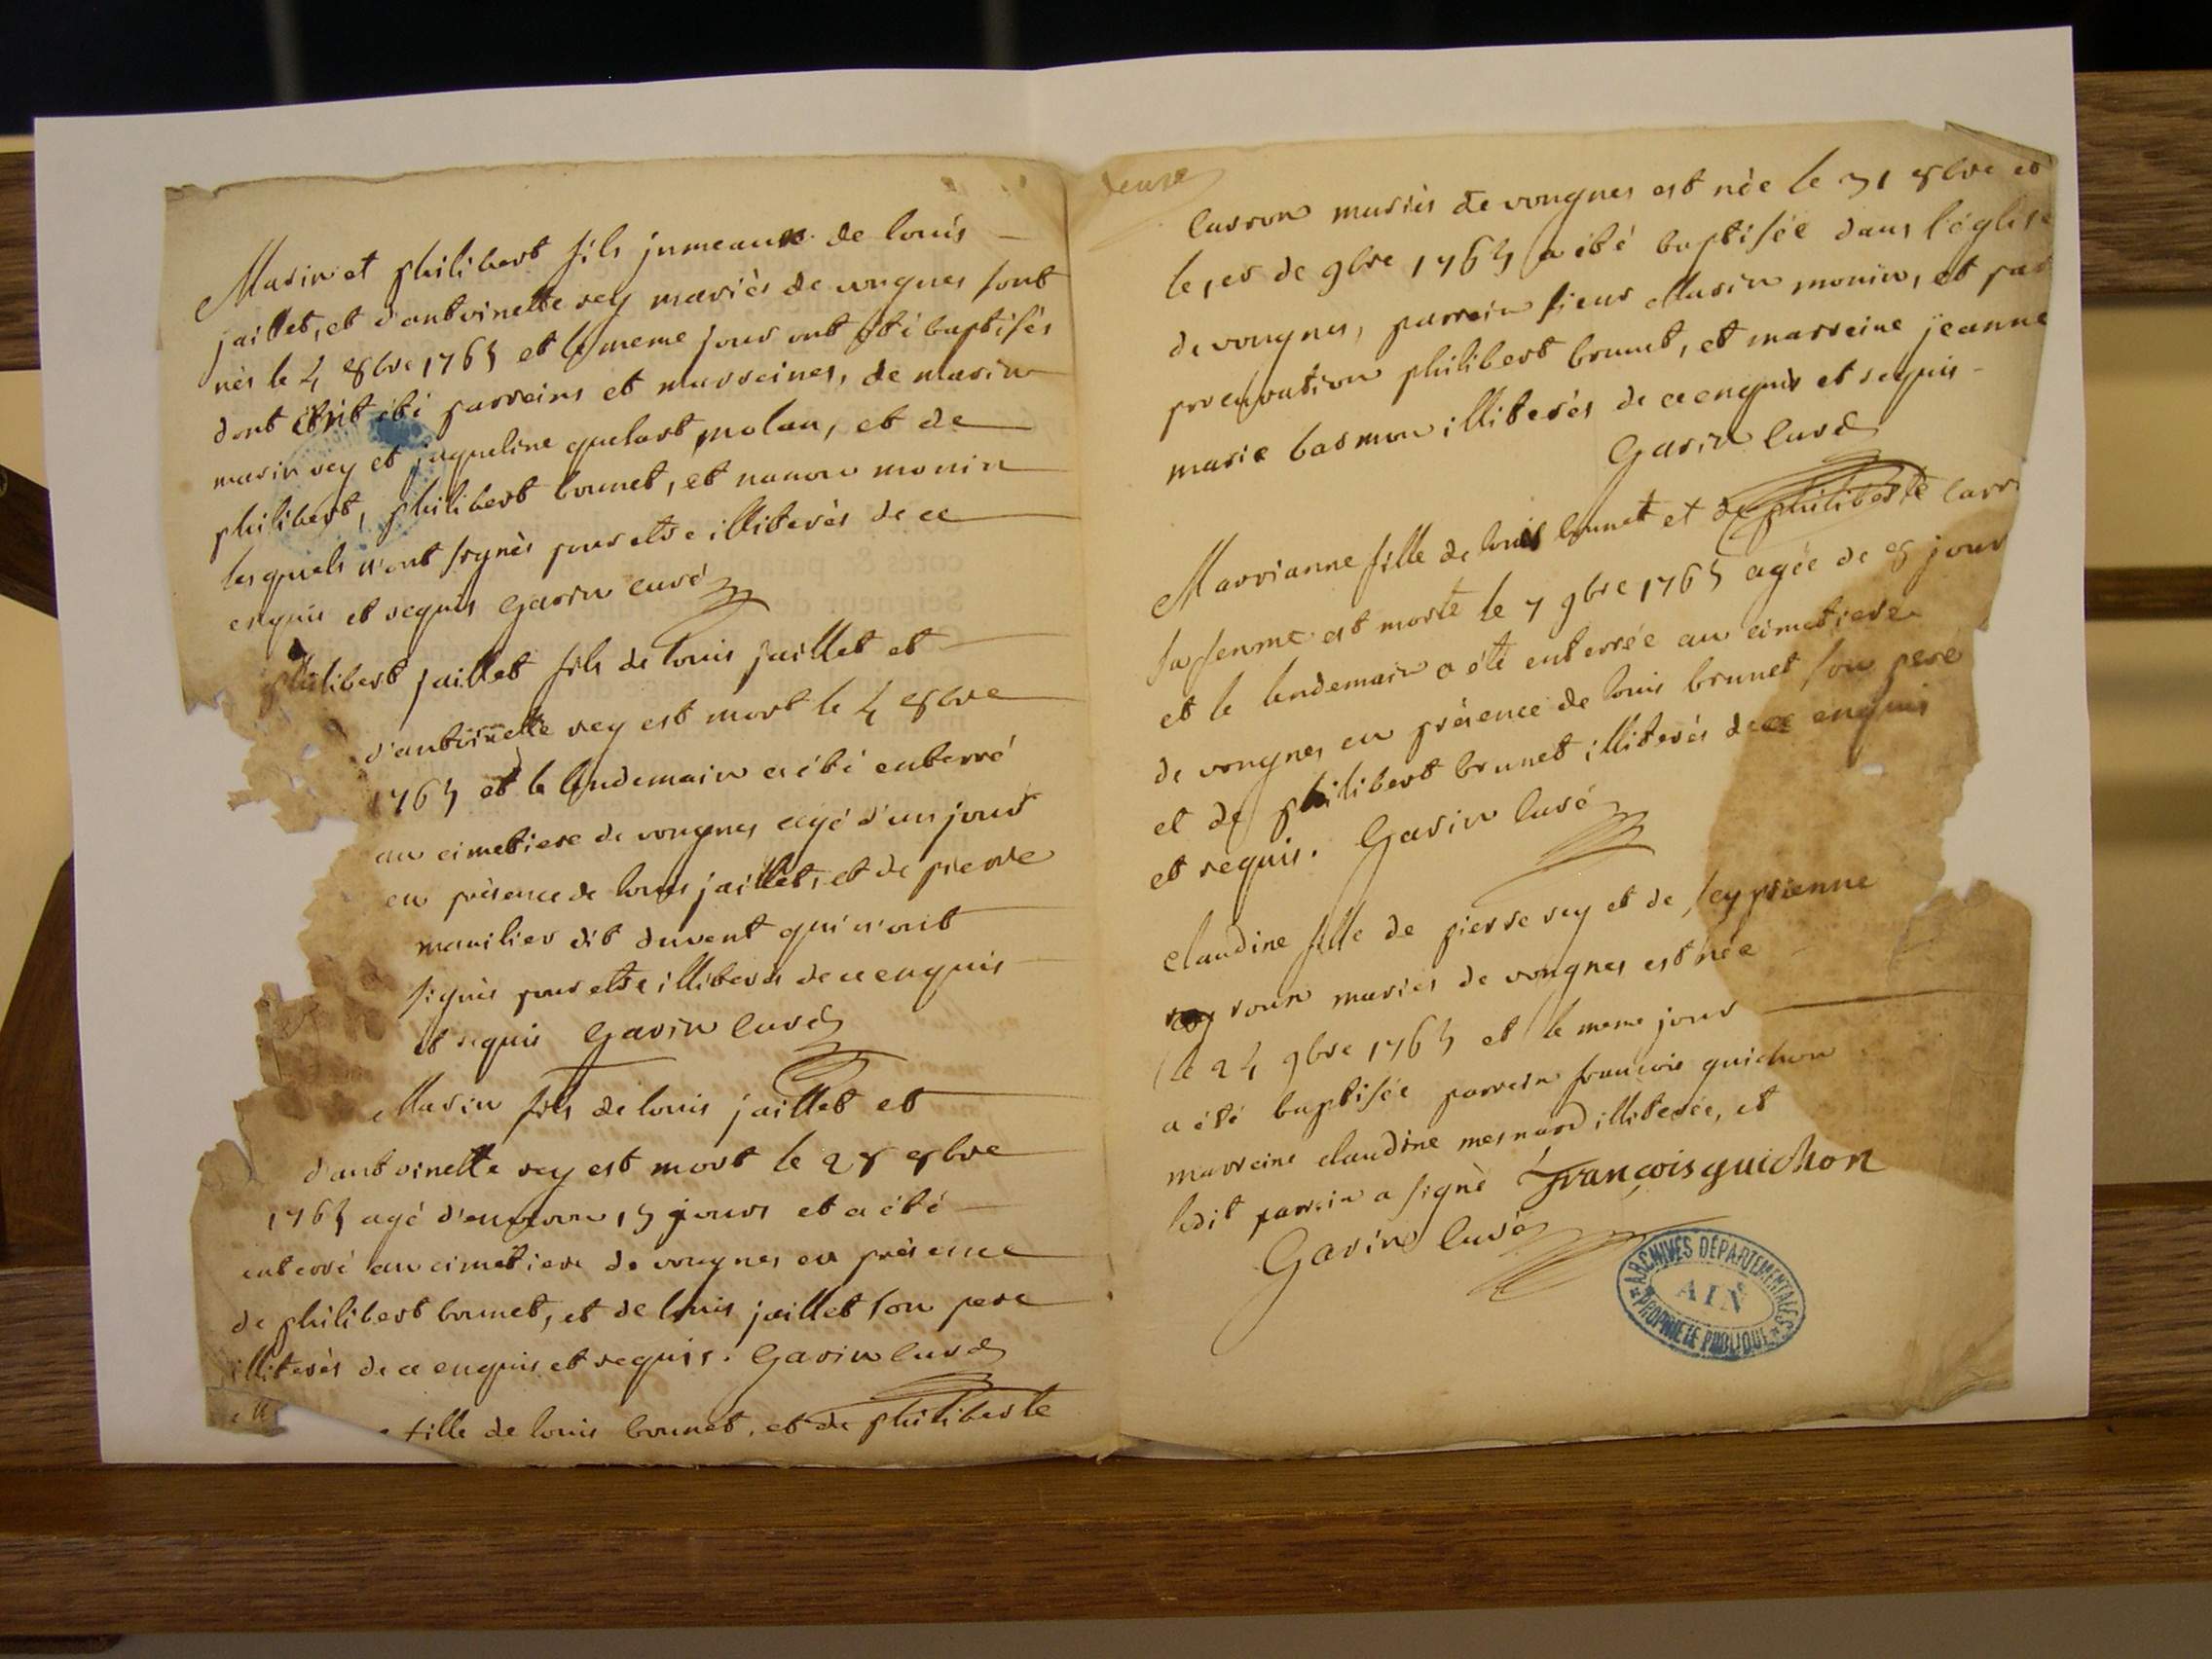 Marin et philibert fils jumeaux de louis
jaillet, et d'antoinette rey mariés de vongnes sont
nés le 4 8bre 1765 et le meme jour ont été baptisés
dont ont été parreins et marreines, de marin
marin rey et jaqueline quelart molan, et de
philibert, philibert brunet, et nanon monin
lesquels n'ont signés pour etre illiterés de ce
enquis et requis Garin curé
philibert jaillet fils de louis jaillet et
d'antoinette rey est mort le 4 8bre
1765 et le lendemain a été enterré
au cimetiere de vongnes agé d'un jour
en présence de louis jaillet, et de pierre
manilier dit duvent qui n'ont
signés pour etre illiterés de ce enquis
et requis Garin Curé
Marin fils de louis jaillet et
d'antoinette rey est mort le 28 8bre
1765 agé d'environ 15 jours et a été
enterré au cimetiere de vongnes en présence
de philibert brunet, et de louis jaillet son pere
illiterés de ce enquis et requis. Garin Curé
fille de louis brunet, et de philiberte
deuxe
Carron mariés de vongnes est née le 31 8bre et
le 1er de 9bre 1765 a été baptisée dans l'église
de vongnes, parrein sieur Marin monin, et par
procuration philibert brunet, et marreine jeanne
marie basmon illiterés de ce enquis et requis
Garin Curé
Marrianne fille de louis brunet et de philiberte Carr
sa femme est morte le 7 9bre 1765 agée de 8 jour
et le lendemain a été enterrée au cimetiere
de vongnes en présence de louis brunet son pere
et de philibert brunet illiterés de ce enquis
et requis. Garin Curé
Claudine fille de pierre rey et de seyprienne
roux mariés de vongnes est née
le 24 9bre 1765 et le meme jour
a été baptisée parrein francois guichon
marreine claudine mesnard illiterée, et
ledit parrein a signé François guichon
Garin Curé
ARCHIVES DÉPARTEMENTALES
AIN
PROPRIÉTÉ PUBLIQUE